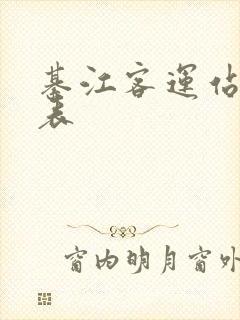 綦江客运佔
表
窗内明月窗外